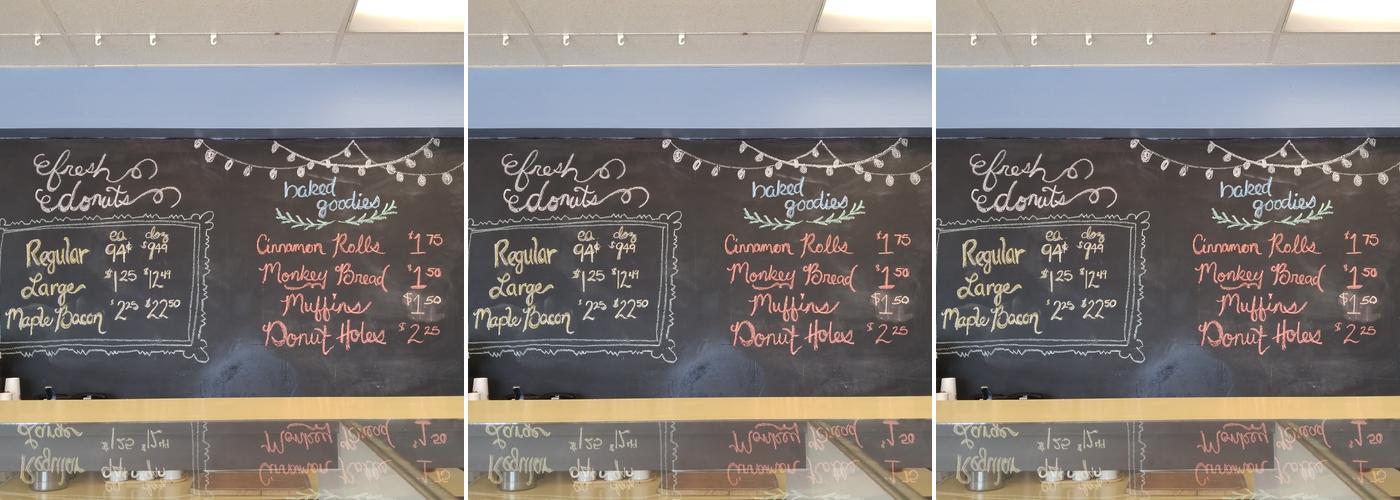 fresh
donuts
ea doz
Regular 94¢ $9.49
Large $1.25 $12.49
Maple Bacon $2.25 $22.50
baked
goodies
Cinnamon Rolls $1.75
Monkey Bread $1.50
Muffins $1.50
Donut Holes $2.25
fresh
donuts
ea doz
Regular 94¢ $9.49
Large $1.25 $12.49
Maple Bacon $2.25 $22.50
baked
goodies
Cinnamon Rolls $1.75
Monkey Bread $1.50
Muffins $1.50
Donut Holes $2.25
fresh
donuts
ea doz
Regular 94¢ $9.49
Large $1.25 $12.49
Maple Bacon $2.25 $22.50
baked
goodies
Cinnamon Rolls $1.75
Monkey Bread $1.50
Muffins $1.50
Donut Holes $2.25